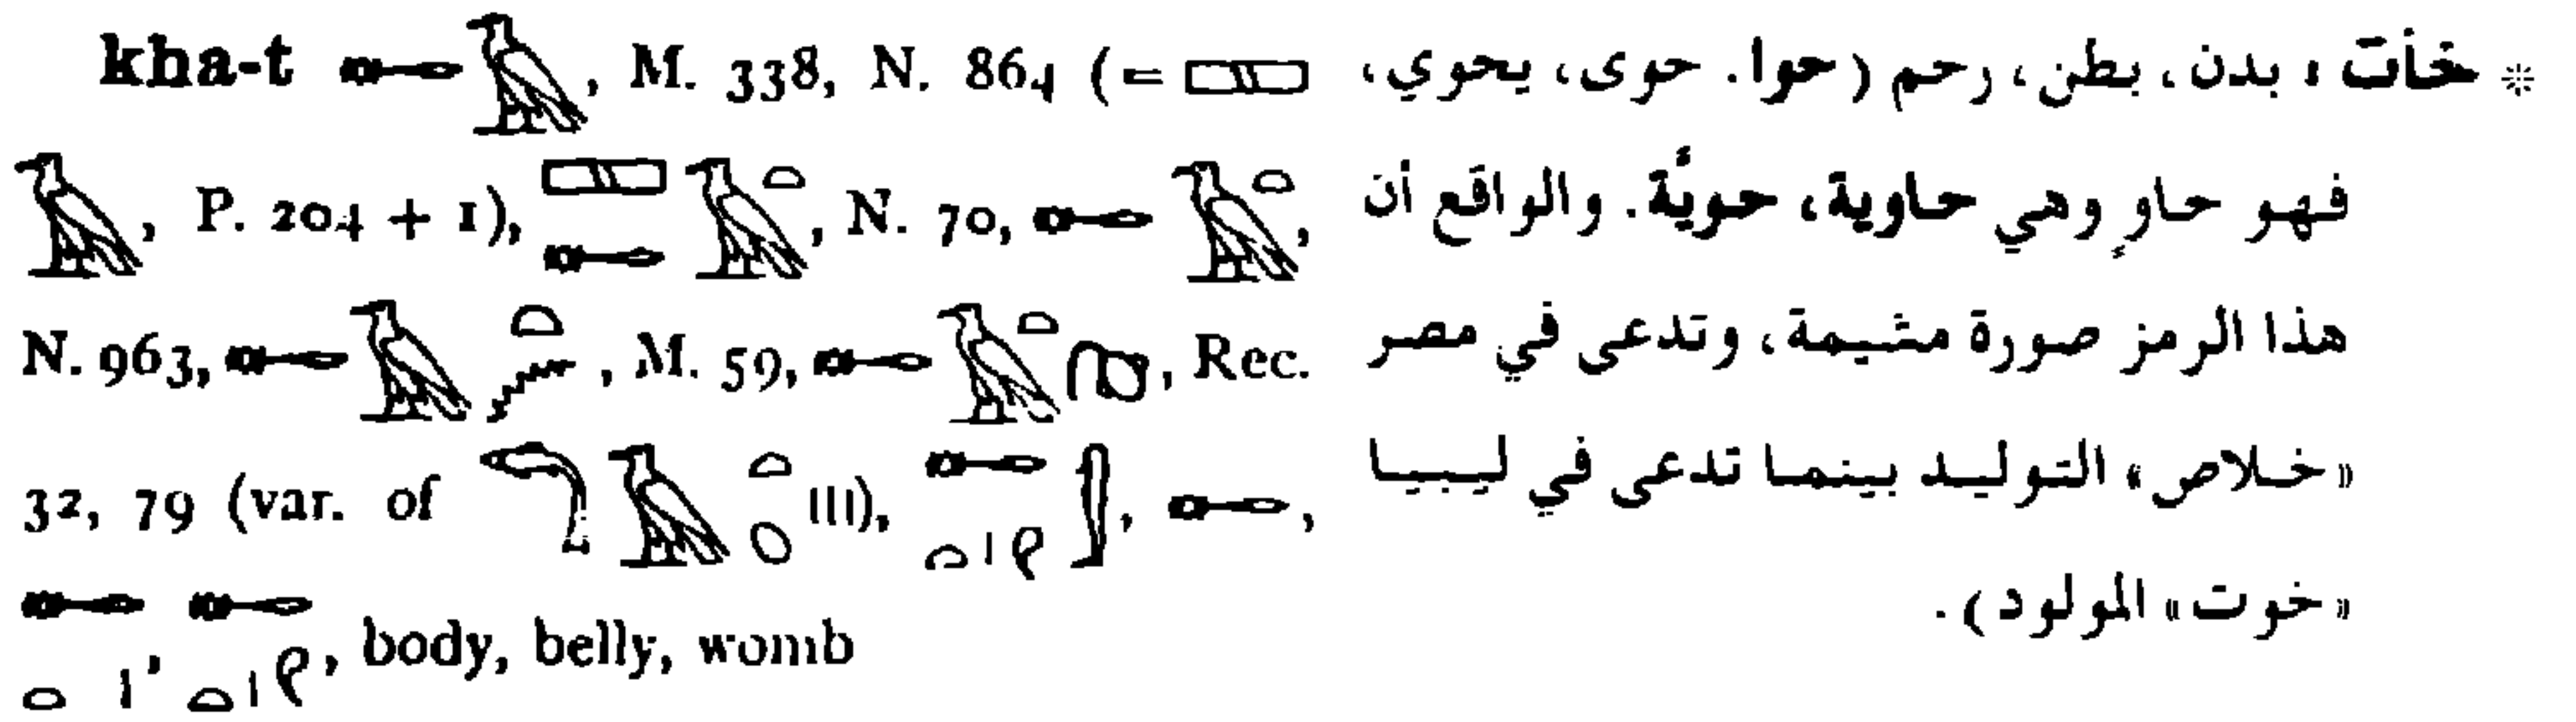 kha-t 𓄡𓄿, M. 338, N. 864 (= 𓈚
𓄿, P. 204 + 1), 𓈚𓄡𓄿𓏏, N. 70, 𓄡𓄿𓏏,
N. 963, 𓄡𓄿𓏏, M. 59, 𓄡𓄿𓏏, Rec.
32, 79 (var. of 𓄿𓏏 III), 𓄡𓏏𓏤, 𓄡,
𓄡𓏏𓏤, 𓄡𓏏𓏤, body, belly, womb
* خأت ، بدن ، بطن ، رحم (حوا. حوى ، يحوي ،
فهو حاوٍ وهي حاوية، حويّة. والواقع أن
هذا الرمز صورة مشيمة، وتدعى في مصر
«خلاص» التوليد بينما تدعى في ليبيا
«خوت» المولود).